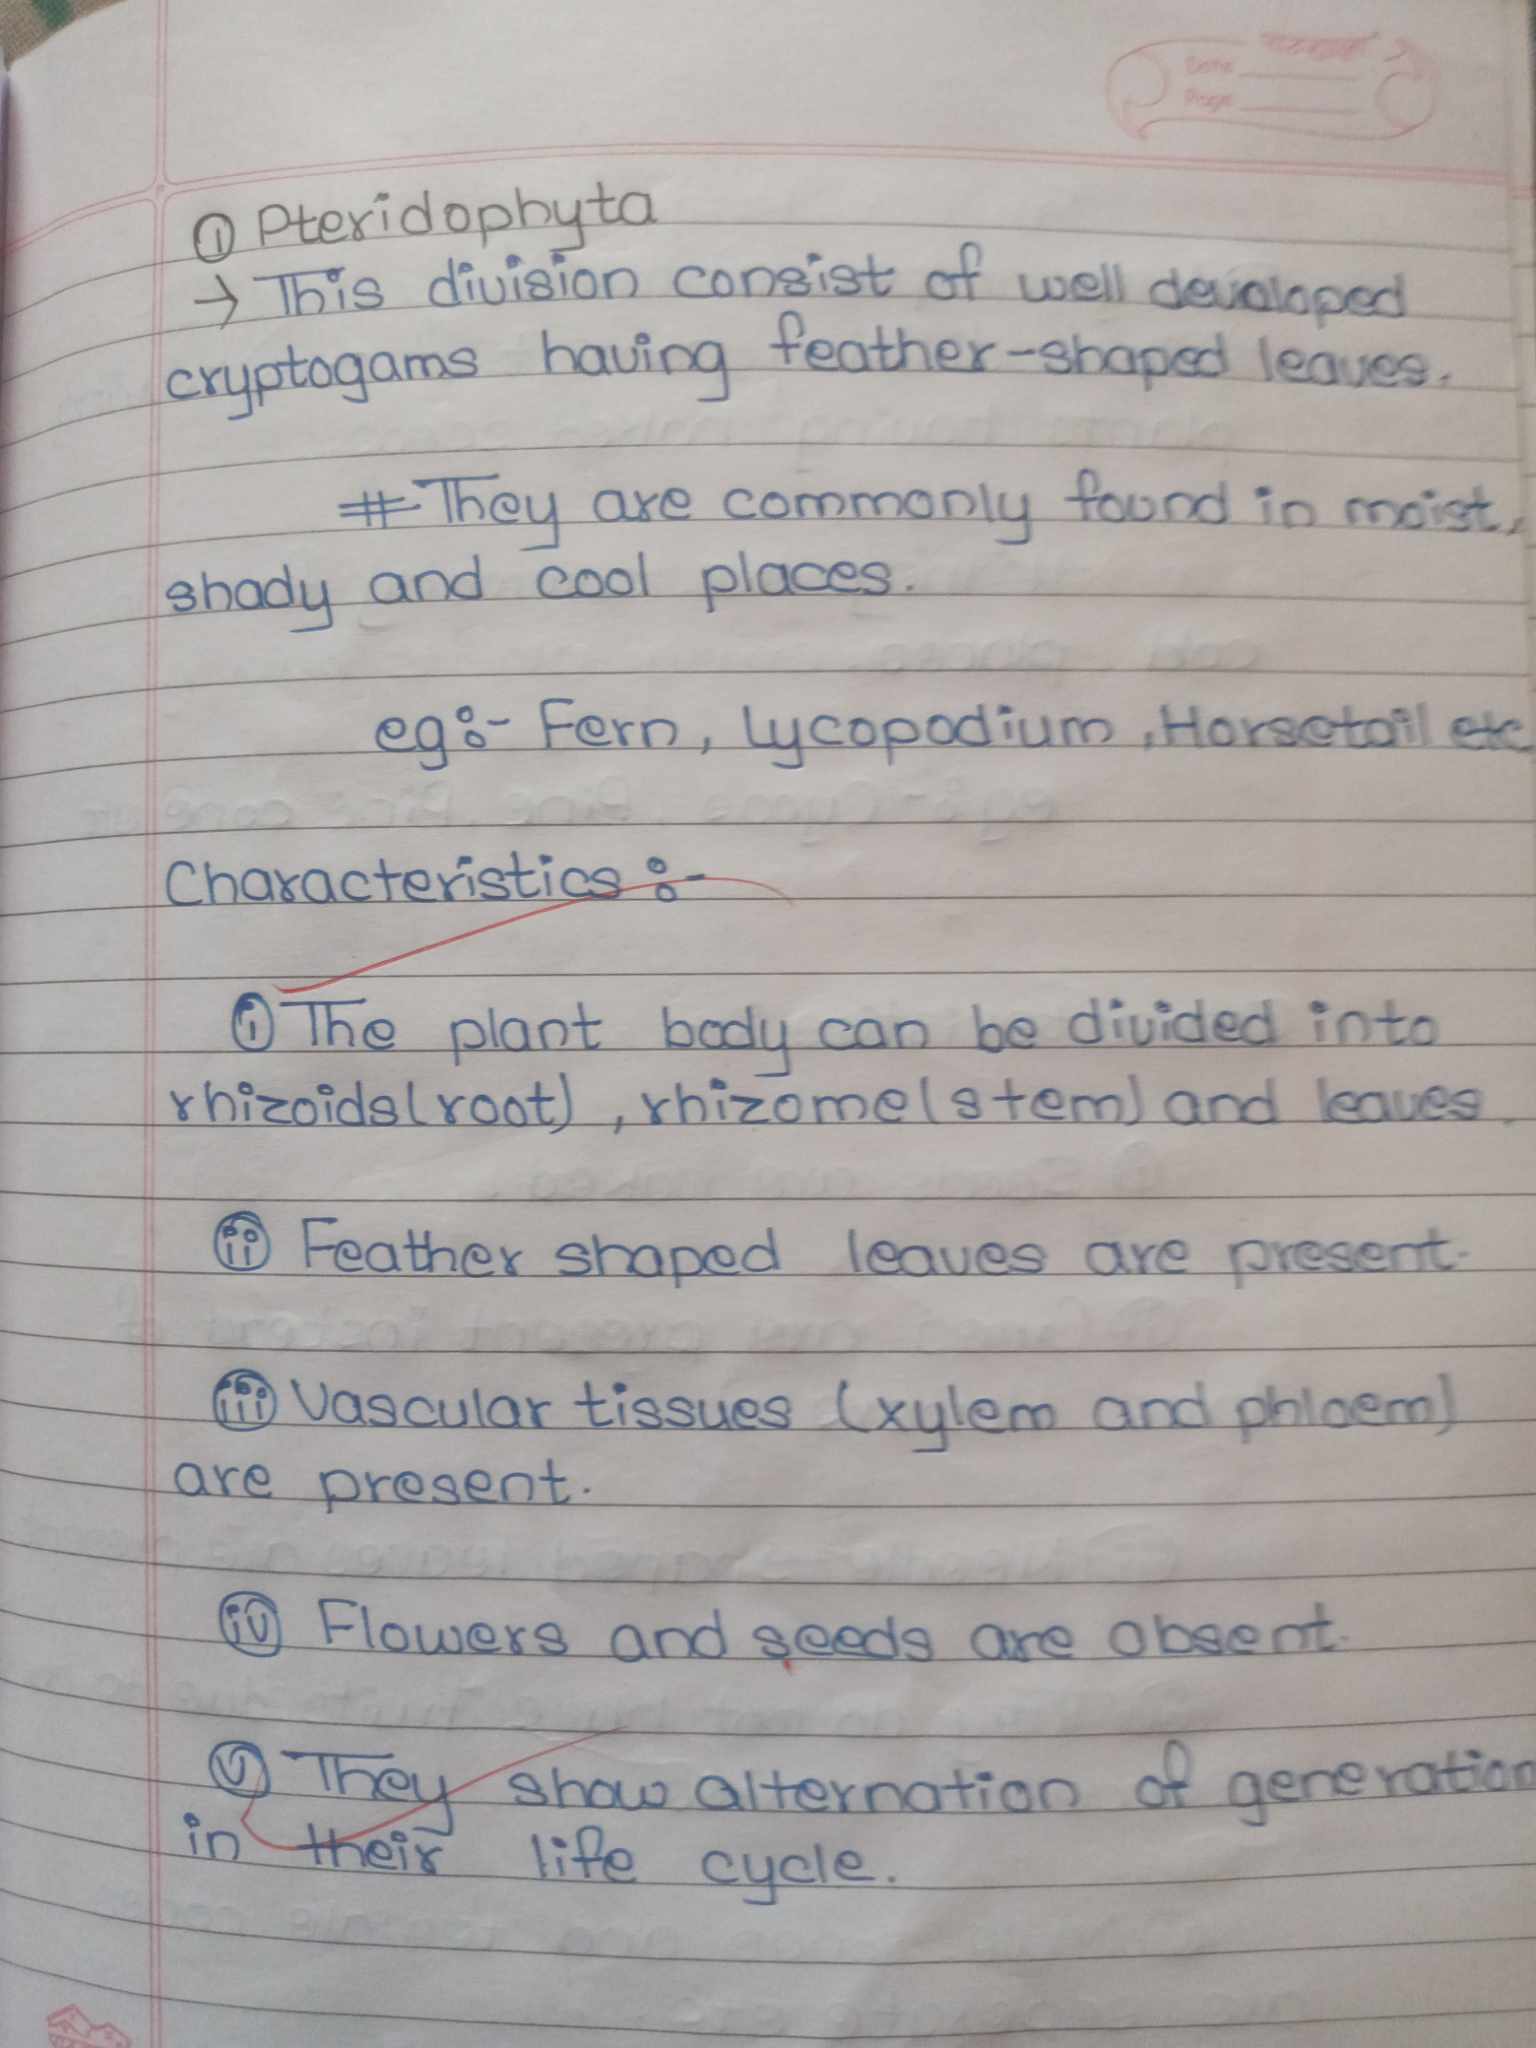 Date
Page
① Pteridophyta
→ This division consist of well developed
cryptogams having feather-shaped leaves.
# They are commonly found in moist,
shady and cool places.
eg:- Fern, Lycopodium, Horsetail etc
Characteristics :-
ⓘ The plant body can be divided into
rhizoids(root), rhizome(stem) and leaves.
ⓘⓘ Feather shaped leaves are present.
ⓘⓘⓘ Vascular tissues (xylem and phloem)
are present.
ⓘⓥ Flowers and seeds are absent.
ⓥ They show alternation of generation
in their life cycle.